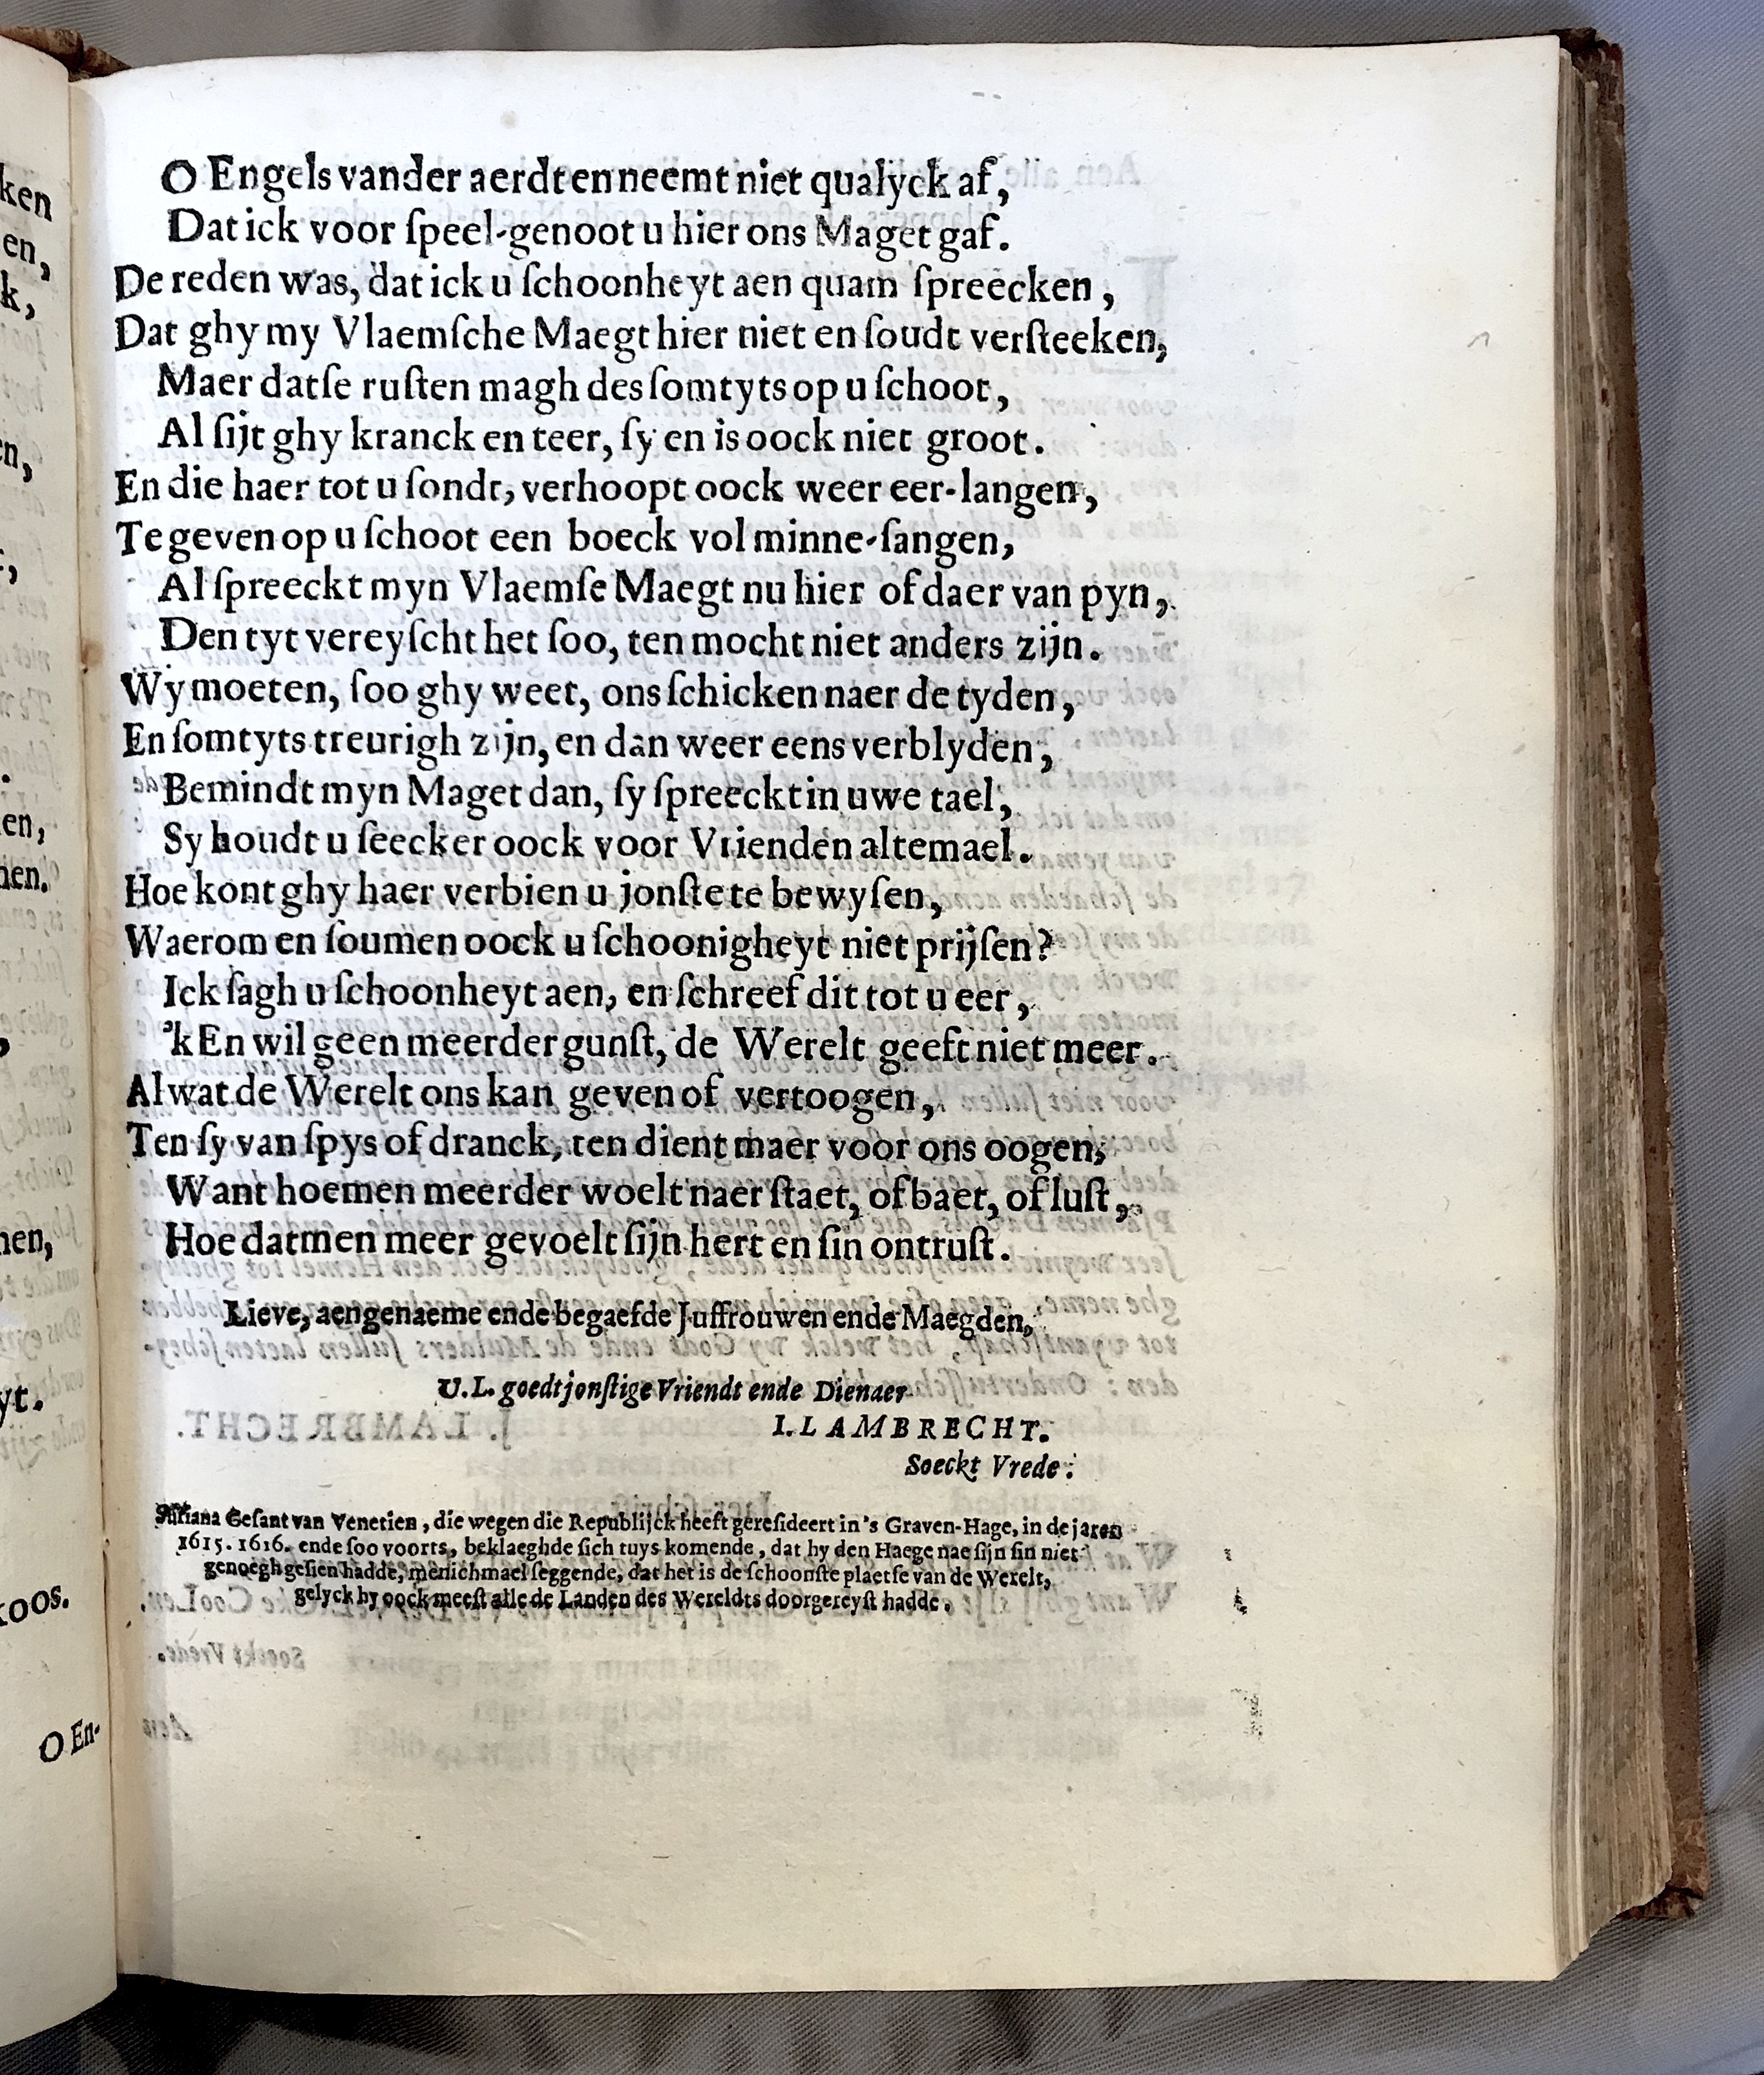 O Engels vander aerdt en neemt niet qualyck af,
Dat ick voor ſpeel-genoot u hier ons Maget gaf.
De reden was, dat ick u ſchoonheyt aen quam ſpreecken,
Dat ghy my Vlaemſche Maegt hier niet en ſoudt verſteeken,
Maer datſe ruſten magh des ſomtyts op u ſchoot,
Al ſijt ghy kranck en teer, ſy en is oock niet groot.
En die haer tot u ſondt, verhoopt oock weer eer-langen,
Te geven op u ſchoot een boeck vol minne-ſangen,
Al ſpreeckt myn Vlaemſe Maegt nu hier of daer van pyn,
Den tyt vereyſcht het ſoo, ten mocht niet anders zijn.
Wy moeten, ſoo ghy weet, ons ſchicken naer de tyden,
En ſomtyts treurigh zijn, en dan weer eens verblyden,
Bemindt myn Maget dan, ſy ſpreeckt in uwe tael,
Sy houdt u ſeecker oock voor Vrienden altemael.
Hoe kont ghy haer verbien u jonſte te bewyſen,
Waerom en ſoumen oock u ſchoonigheyt niet prijſen?
Ick ſagh u ſchoonheyt aen, en ſchreef dit tot u eer,
'k En wil geen meerder gunſt, de Werelt geeft niet meer.
Al wat de Werelt ons kan geven of vertoogen,
Ten ſy van ſpys of dranck, ten dient maer voor ons oogen,
Want hoemen meerder woelt naer ſtaet, of baet, of luſt,
Hoe datmen meer gevoelt ſijn hert en ſin ontruſt.
Lieve, aengenaeme ende begaefde Juffrouwen ende Maegden,
U.L. goedtjonſtige Vriendt ende Dienaer
I. LAMBRECHT.
Soeckt Vrede.
Geſant van Venetien, die wegen die Republijck heeft gereſideert in 's Graven-Hage, in de jaren
1615. 1616. ende ſoo voorts, beklaeghde ſich tuys komende, dat hy den Haege nae ſijn ſin niet
genoegh geſien hadde, menichmael ſeggende, dat het is de ſchoonſte plaetſe van de Werelt,
gelyck hy oock meeſt alle de Landen des Wereldts doorgereyſt hadde.
ken
en,
k,
n,
en,
nen.
nen,
yt.
koos.
O En-